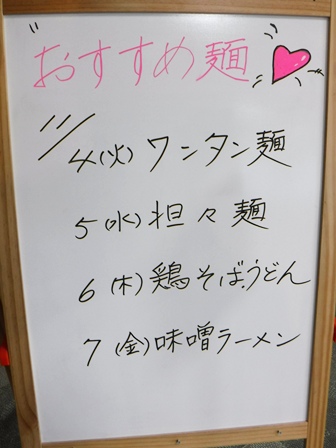 おすすめ麺
11/4(火)ワンタン麺
5(水)担々麺
6(木)鶏そば.うどん
7(金)味噌ラーメン